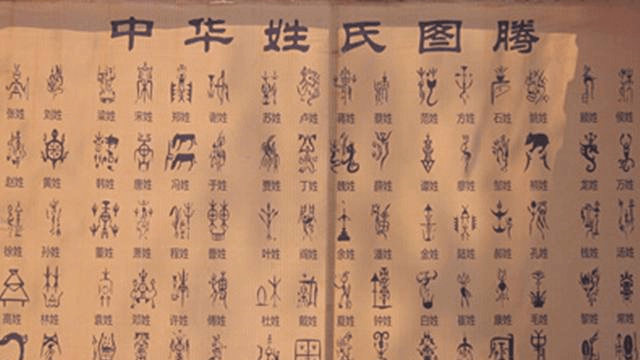 中华姓氏图腾
张姓 刘姓 梁姓 宋姓 郑姓 谢姓 苏姓 卢姓 蒋姓 蔡姓 范姓 方姓 石姓 姚姓 顾姓 侯姓
赵姓 黄姓 韩姓 唐姓 冯姓 于姓 贾姓 丁姓 魏姓 薛姓 谭姓 廖姓 邹姓 熊姓 龙姓 万姓
徐姓 孙姓 董姓 萧姓 程姓 曹姓 叶姓 阎姓 余姓 潘姓 金姓 陆姓 郝姓 孔姓 钱姓 汤姓
高姓 林姓 袁姓 邓姓 许姓 傅姓 杜姓 戴姓 夏姓 钟姓 白姓 崔姓 康姓 毛姓 黎姓 常姓